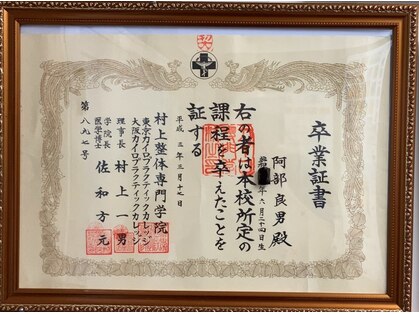 卒業証書
阿部良男殿
年六月二十四日生
右の者は本校所定の
課程を卒えたことを
証する
平成三年三月十七日
村上整体専門学院
東京カイロプラクティックカレッジ
大阪カイロプラクティックカレッジ
理事長 村上一男
学院長
医学博士 佐和方元
第八九七号